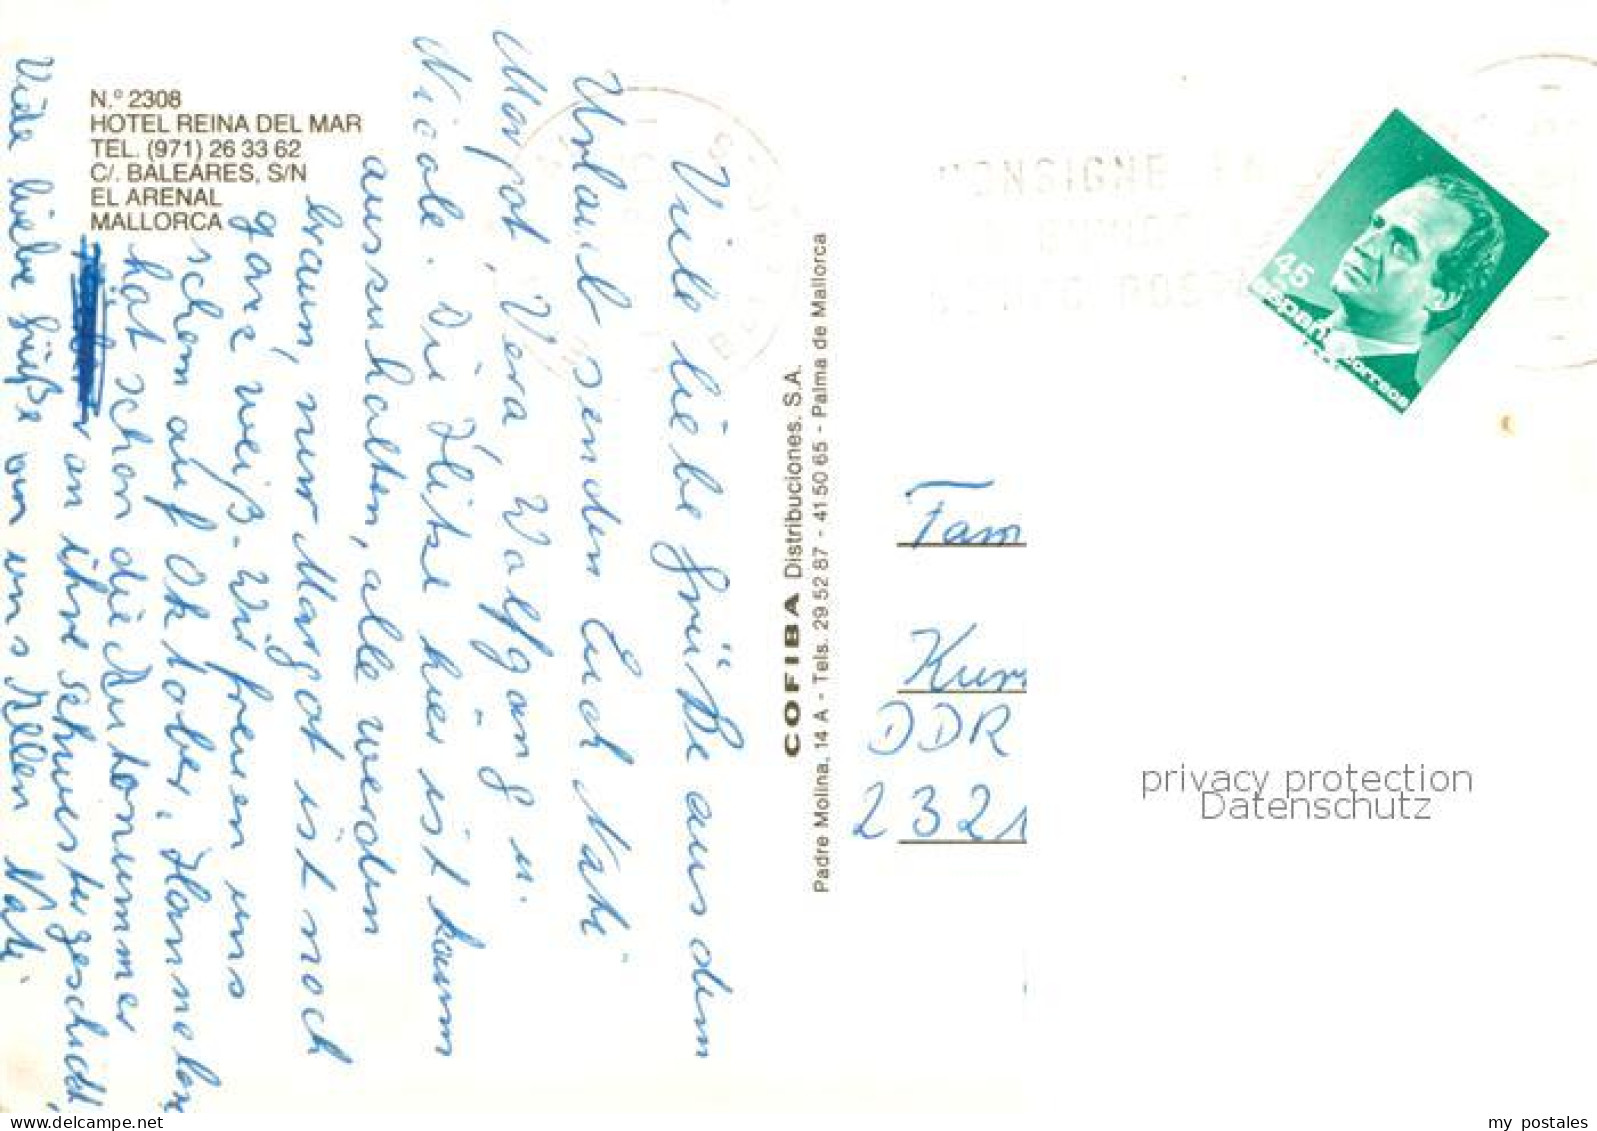 N.º 2308
HOTEL REINA DEL MAR
TEL. (971) 26 33 62
C/. BALEARES, S/N
EL ARENAL
MALLORCA
Viele liebe Grüße aus dem
Urlaub senden Euch Kati
Margot, Vera Wolfgang u.
Nicole. Die Hitze hier ist kaum
auszuhalten, alle werden
braun, nur Margot ist noch
ganz weiß. Wir freuen uns
schon auf Oktober. Hannelore
hat schon die Autonummer
an ihre Schwester geschickt,
Viele liebe Grüße von uns Allen Kati.
COFIBA Distribuciones. S.A.
Padre Molina, 14 A - Tels. 29 52 87 - 41 50 65 - Palma de Mallorca
CONSIGNE
45
España
correos
Fam
Kur
DDR
2321
privacy protection
Datenschutz
delcampe.net
my postales